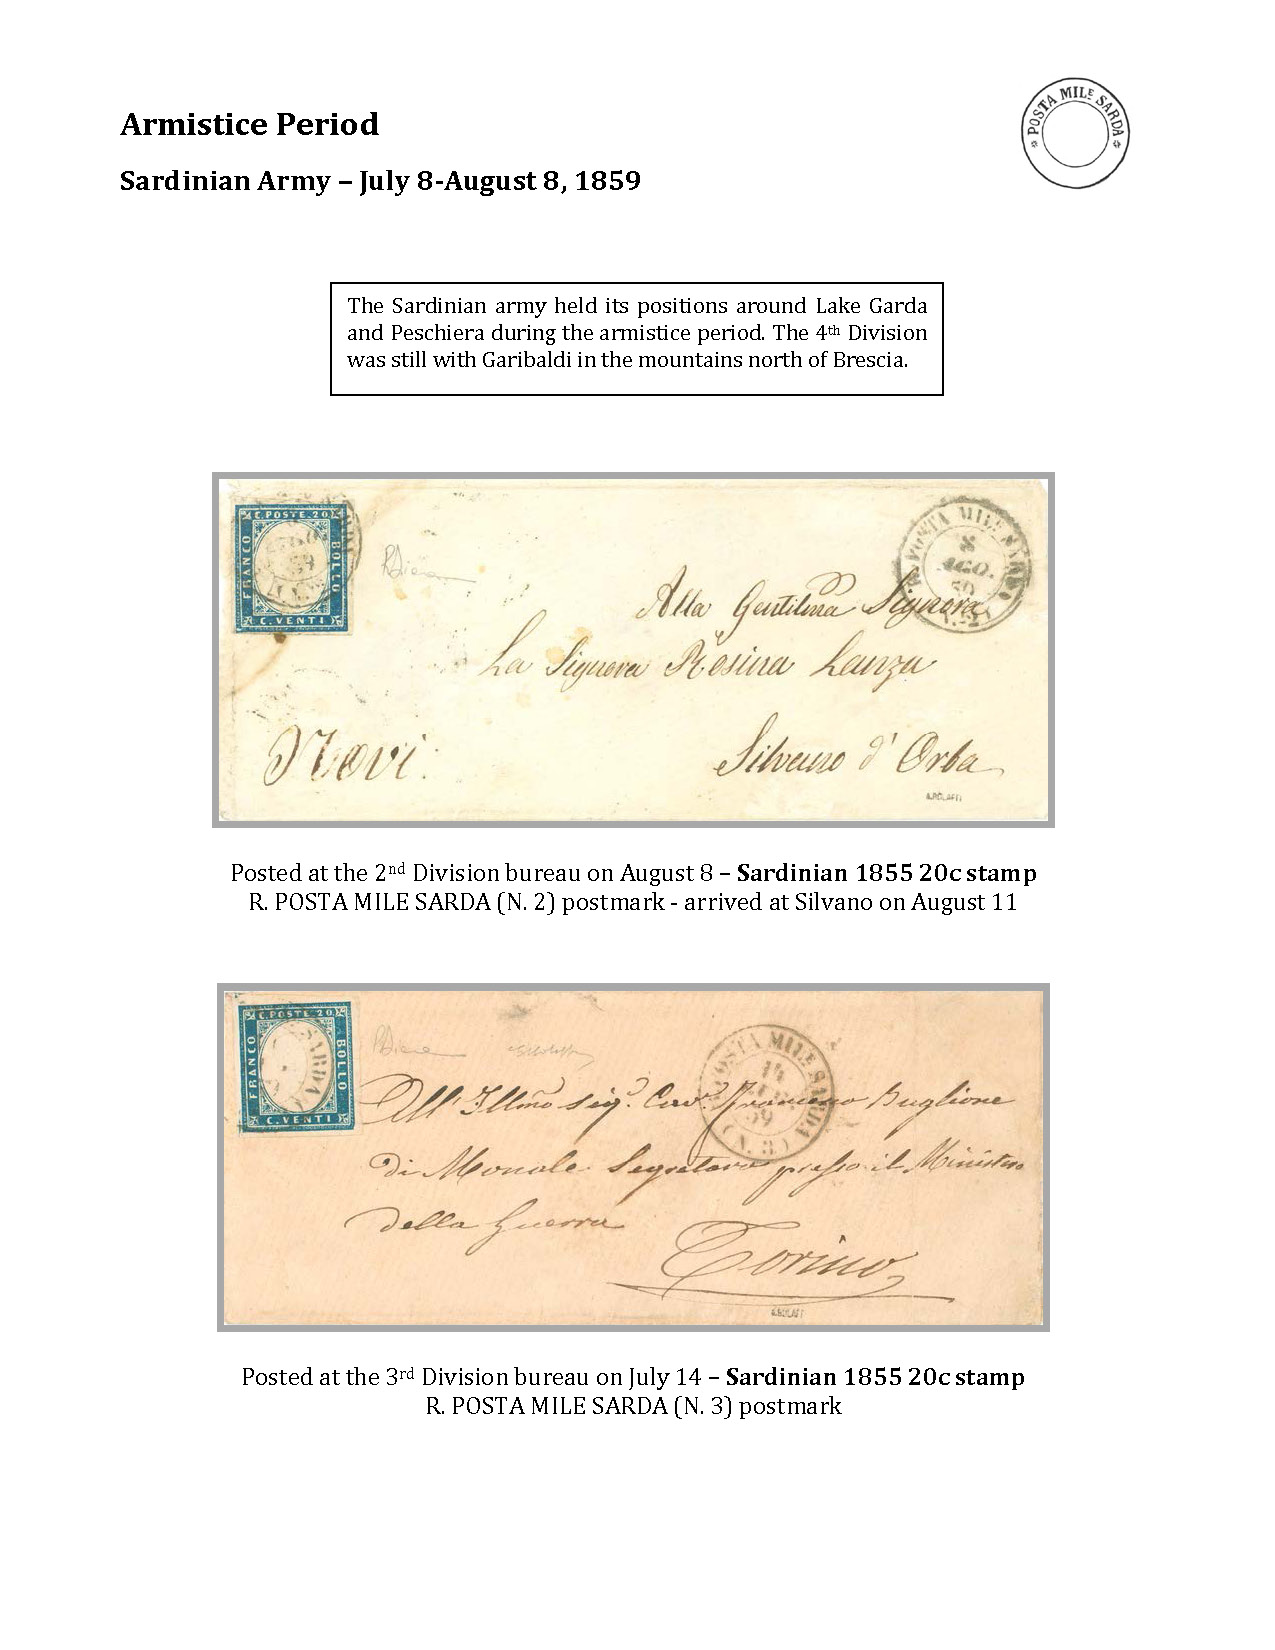 Armistice Period
* POSTA MILE SARDA *
Sardinian Army – July 8-August 8, 1859
The Sardinian army held its positions around Lake Garda
and Peschiera during the armistice period. The 4th Division
was still with Garibaldi in the mountains north of Brescia.
C. POSTE. 20.
FRANCO
BOLLO
C. VENTI
POSTA MILE SARDA
8
AGO.
59
Alla Gentilma Signora
La Signora Rosina Lanza
Novi
Silvano d' Orba
Posted at the 2nd Division bureau on August 8 – Sardinian 1855 20c stamp
R. POSTA MILE SARDA (N. 2) postmark - arrived at Silvano on August 11
C. POSTE. 20.
FRANCO
BOLLO
C. VENTI
SARDA
POSTA MILE SARDA (N. 3)
14
59
All' Illmo sigr Cavr Francesco Buglione
di Monale Segretaro presso il Ministero
della Guerra
Torino
Posted at the 3rd Division bureau on July 14 – Sardinian 1855 20c stamp
R. POSTA MILE SARDA (N. 3) postmark